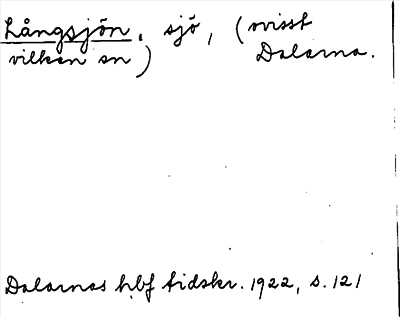 Långsjön, sjö, (ovisst
vilken sn) Dalarna.
Dalarnas hbf tidskr. 1922, s. 121